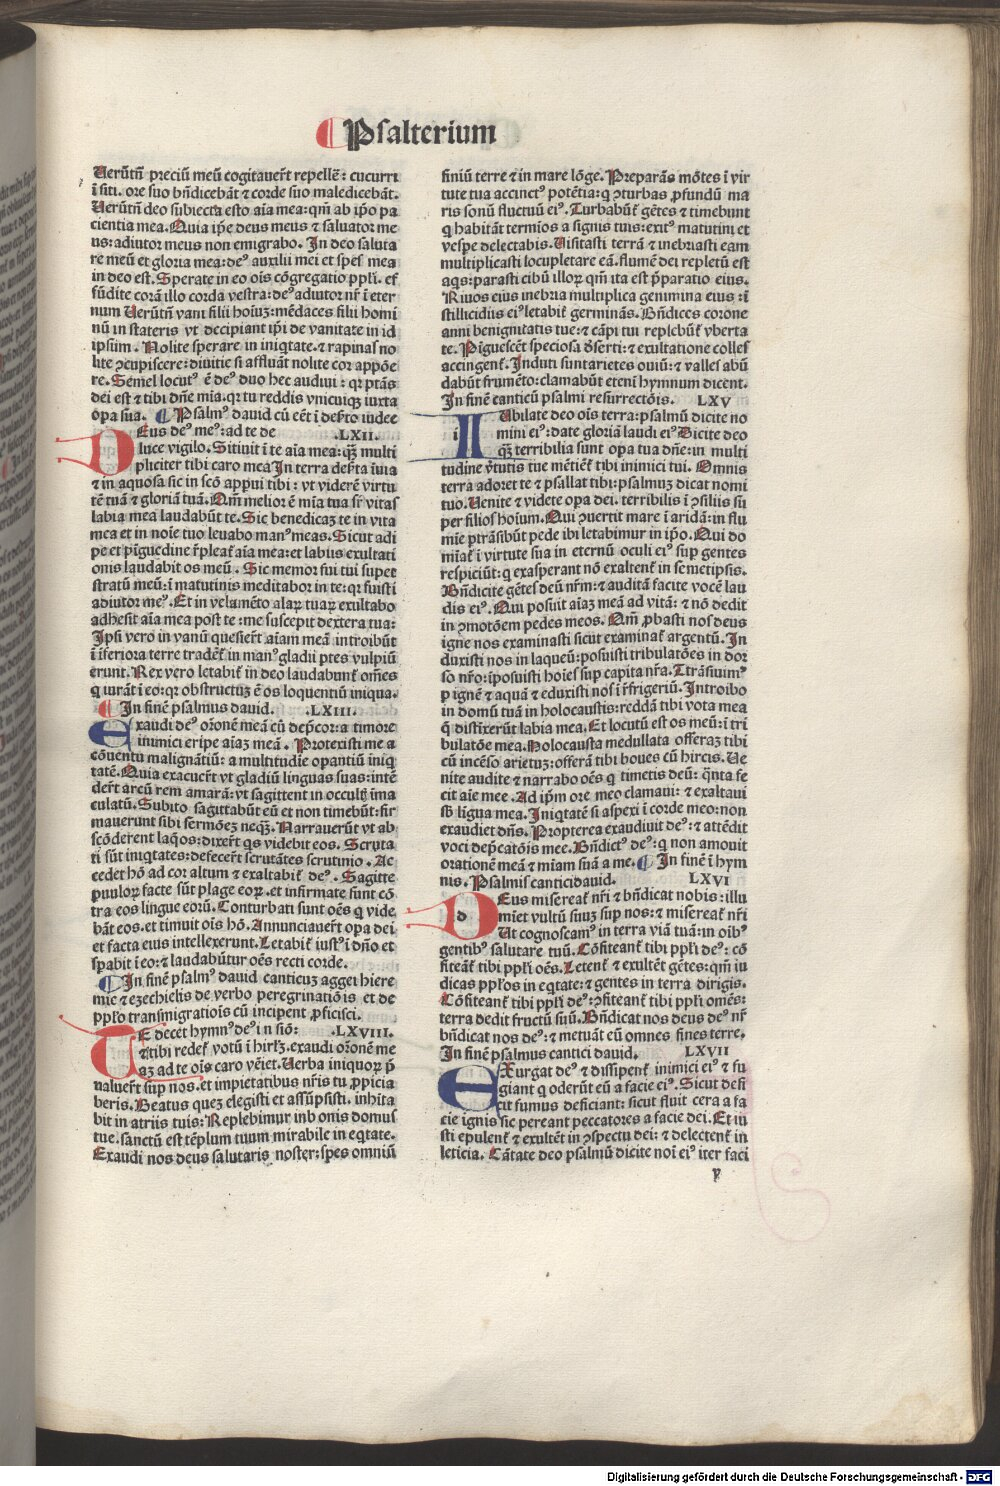 Psalterium
Uerūtñ preciū meū cogitauer̄t repellē: cucurri
ī siti. ore suo bñdicebāt ⁊ corde suo maledicebāt.
Uerūtñ deo subiecta esto aīa mea: qm̄ ab ip̄o pa
cientia mea. Quia ip̄e deus meus ⁊ saluator me
us: adiutor meus non emigrabo. In deo saluta
re meū et gloria mea: deꝰ auxilii mei et spes mea
in deo est. Sperate in eo oīs cōgregatio pp̄li. ef
fūdite corā illo corda vestra: deꝰ adiutor nr̄ ī eter
num Uerūtñ vani filii hoīuꝫ: mēdaces filii homi
nū in stateris vt decipiant ip̄i de vanitate in id
ipsum. Nolite sperare in iniqtate. ⁊ rapinas no
lite ꝯcupiscere: diuitie si affluāt nolite cor appōe
re. Semel locutꝰ ē deꝰ duo hec audiui: qꝛ ptās
dei est ⁊ tibi dñe mia. qꝛ tu reddis vnicuiqꝫ iuxta
opa sua. Psalmꝰ dauid cū eēt ī deẜto iudee
Eus deꝰ meꝰ: ad te de .LXII.
luce vigilo. Sitiuit ī te aīa mea: qꝫ multi
pliciter tibi caro mea In terra deẜta īuia
⁊ in aquosa sic in scō appui tibi: vt viderē virtu
tē tuā ⁊ gloriā tuā. Qm̄ melior ē mīa tua sr̄ vitas
labia mea laudabūt te. Sic benedicaꝫ te in vita
mea et in noīe tuo leuabo manꝰ meas. Sicut adi
pe et pīguedine r̄pleat̄ aīa mea: et labiis exultati
onis laudabit os meū. Sic memor fui tui super
stratū meū: ī matutinis meditabor in te: qꝛ fuisti
adiutor meꝰ. Et in velamēto alaꝝ tuaꝝ exultabo
adhesit aīa mea post te: me suscepit dextera tua:
Ipsi vero in vanū quesier̄t aīam meā introibūt
ī īferiora terre tradēt̄ in manꝰ gladii ptes vulpiū
erunt. Rex vero letabit̄ in deo laudabunt̄ om̄es
q iurāt ī eo: qꝛ obstructuꝫ ē os loquentiū iniqua.
In finē psalmus dauid. .LXIII.
Exaudi deꝰ orōnē meā cū dep̄cor: a timore
inimici eripe aīaꝫ meā. Protexisti me a
cōuentu malignātiū: a multitudie opantiū iniq
tatē. Quia exacuer̄t vt gladiū linguas suas: intē
der̄t arcū rem amarā: vt sagittent in occultꝭ īma
culatū. Subito sagittabūt eū et non timebūt: fir
mauerunt sibi sermōeꝫ neqꝫ. Narrauerūt vt ab
scōderent laq̄os: dixer̄t qs videbit eos. Scruta
ti sūt iniqtates: defecer̄t scrutātes scrutinio. Ac
cedet hō ad cor altum ⁊ exaltabit̄ deꝰ. Sagitte
puuloꝝ facte sūt plage eoꝝ. et infirmate sunt cō
tra eos lingue eorū. Conturbati sunt oēs q vide
bāt eos. et timuit oīs hō. Annunciauer̄t opa dei
et facta eius intellexerunt. Letabit̄ iustꝰ ī dño et
sꝑabit ī eo: ⁊ laudabūtur oēs recti corde.
In finē psalmꝰ dauid canticuꝫ aggei hiere
mie ⁊ ezechielis de verbo peregrinatiōis et de
pp̄lo transmigratiōis cū incipent ꝓficisci.
E decet hymnꝰ deꝰ in siō: .LXVIII.
⁊ tibi redet̄ votū ī hirlꝫ. exaudi orōnē me
aꝫ ad te oīs caro vēiet. Uerba iniquoꝝ p̄
naluer̄t sup nos. et impietatibus nr̄is tu ꝓpicia
beris. Beatus queꝫ elegisti et assūpsisti. inhita
bit in atriis tuis: Replebimur in bonis domus
tue. sanctū est tēplum tuum mirabile in eqtate.
Exaudi nos deus salutaris noster: spes omniū
finiū terre ⁊ in mare lōge. Preparās mōtes ī vir
tute tua accinctꝰ potētia: q ꝯturbas ꝓfundū ma
ris sonū fluctuū eiꝰ. Turbabūt̄ gētes ⁊ timebunt
q habitāt termios a signis tuis: exitꝰ matutini et
vespe delectabis. Uisitasti terrā ⁊ inebriasti eam
multiplicasti locupletare eā. flumē dei repletū est
aqs: parasti cibū illoꝝ qm̄ ita est p̄paratio eius.
Riuos eius inebria multiplica genimina eius: ī
stillicidiis eiꝰ letabit̄ germināns. Bñdices corone
anni benignitatis tue: ⁊ cāpi tui replebūt̄ vberta
te. Pīguescēt speciosa d̄serti: ⁊ exultatione colles
accingent̄. Induti sunt arietes ouiū: ⁊ valles abū
dabūt frumēto: clamabūt etenī hymnum dicent.
In finē canticū psalmi resurrectōis. LXV
Ubilate deo oīs terra: psalmū dicite no
mini eiꝰ: date gloriā laudi eiꝰ Dicite deo
qꝫ terribilia sunt opa tua dñe: in multi
tudine v̄tutis tue mētiēt̄ tibi inimici tui. Omnis
terra adoret te ⁊ psallat tibi: psalmuꝫ dicat nomi
tuo. Uenite ⁊ videte opa dei. terribilis ī ꝯsiliis su
per filios hoīum. Qui ꝯuertit mare ī aridā: in flu
mīe ptrāsibūt pede ibi letabimur in ip̄o. Qui do
mīat̄ ī virtute sua in eternū oculi eiꝰ sup gentes
respiciūt: q exasperant nō exaltent̄ in semetipsis.
Bñdicite gētes deū nr̄m: ⁊ auditā facite vocē lau
dis eiꝰ. Qui posuit aīaꝫ meā ad vitā: ⁊ nō dedit
in ꝯmotōem pedes meos. Qm̄ ꝓbasti nos deus
igne nos examinasti sicut examinat̄ argentū. In
duxisti nos in laqueū: posuisti tribulatōes in dor
so nr̄o: īposuisti hoīes sup capita nr̄a. Trāsiuimꝰ
p ignē ⁊ aquā ⁊ eduxisti nos ī r̄frigeriū. Introibo
in domū tuā in holocaustis: reddā tibi vota mea
q distīxerūt labia mea. Et locutū est os meū: ī tri
bulatōe mea. Holocausta medullata offeraꝫ tibi
cū incēso arietuꝫ: offerā tibi boues cū hircis. Ue
nite audite ⁊ narrabo oēs q timetis deū: q̄nta fe
cit aīe mee. Ad ip̄m ore meo clamaui: ⁊ exaltaui
sb̄ līgua mea. Iniqtatē si aspexi ī corde meo: non
exaudiet dñs. Propterea exaudiuit deꝰ: ⁊ attēdit
voci dep̄catōis mee. Bñdictꝰ deꝰ: q non amouit
orationē meā ⁊ mīam suā a me. In finē ī hym
nis. Psalmis canticidauid. LXVI
Eus misereat̄ nr̄i ⁊ bñdicat nobis: illu
mīet vultū suuꝫ sup nos: ⁊ misereat̄ nr̄i
Ut cognoscamꝰ in terra viā tuā: in oībꝰ
gentibꝰ salutare tuū. Cōfiteant̄ tibi pp̄li deꝰ: cō
fiteāt̄ tibi pp̄li oēs. Letent̄ ⁊ exultēt gētes: qm̄ iu
dicas pp̄los in eqtate: ⁊ gentes in terra dirigis.
Cōfiteant̄ tibi pp̄li deꝰ: ꝯfiteant̄ tibi pp̄li om̄es:
terra dedit fructū suū. Bñdicat nos deus deꝰ nr̄
bñdicat nos deꝰ: ⁊ metuāt eū omnes fines terre.
In finē psalmus cantici dauid. LXVII
EXurgat deꝰ ⁊ dissipent̄ inimici eiꝰ ⁊ fu
giant q oderūt eū a facie eiꝰ. Sicut defi
cit fumus deficiant: sicut fluit cera a fa
cie ignis sic pereant peccatores a facie dei. Et iu
sti epulent̄ ⁊ exultēt in ꝯspectu dei: ⁊ delectent̄ in
leticia. Cātate deo psalmū dicite noī eiꝰ iter faci
v
Digitalisierung gefördert durch die Deutsche Forschungsgemeinschaft - DFG